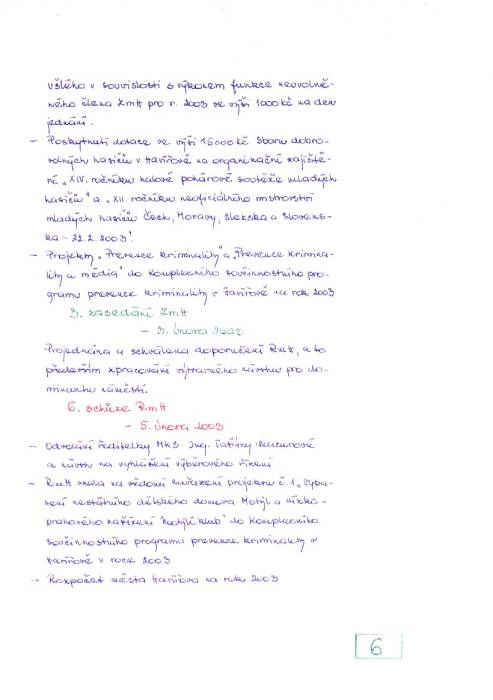 ušlého v souvislosti s výkonem funkce neuvolně-
ného člena ZmH pro r. 2003 ve výši 1000 Kč na den
jednání.
- Poskytnutí dotace ve výši 15000 Kč Sboru dobro-
volných hasičů v Havířově na organizační zajiště-
ní „XIV. ročníku halové pohárové soutěže mladých
hasičů" a „XII. ročníku neoficiálního mistrovství
mladých hasičů Čech, Moravy, Slezska a Slovens-
ka - 22.2.2003".
- Projekty „Prevence kriminality" a „Prevence krimina-
lity a média" do Komplexního součinnostního pro-
gramu prevence kriminality v Havířově na rok 2003
3. zasedání ZmH
- 3. února 2003
Projednána a schválena doporučení RmH, a to
především zpracování výtvarného návrhu pro do-
minantu náměstí.
6. schůze RmH
- 5. února 2003
- Odvolání ředitelky MKS Ing. Taťány
a návrh na vyhlášení výběrového řízení
- RmH vzala na vědomí zařazení projektu č. 1 „Vyba-
vení nestátního dětského domova Motýl a nízko-
prahového zařízení "Motýlí klub" do Komplexního
součinnostního programu prevence kriminality v
Havířově v roce 2003
- Rozpočet města Havířova na rok 2003
6